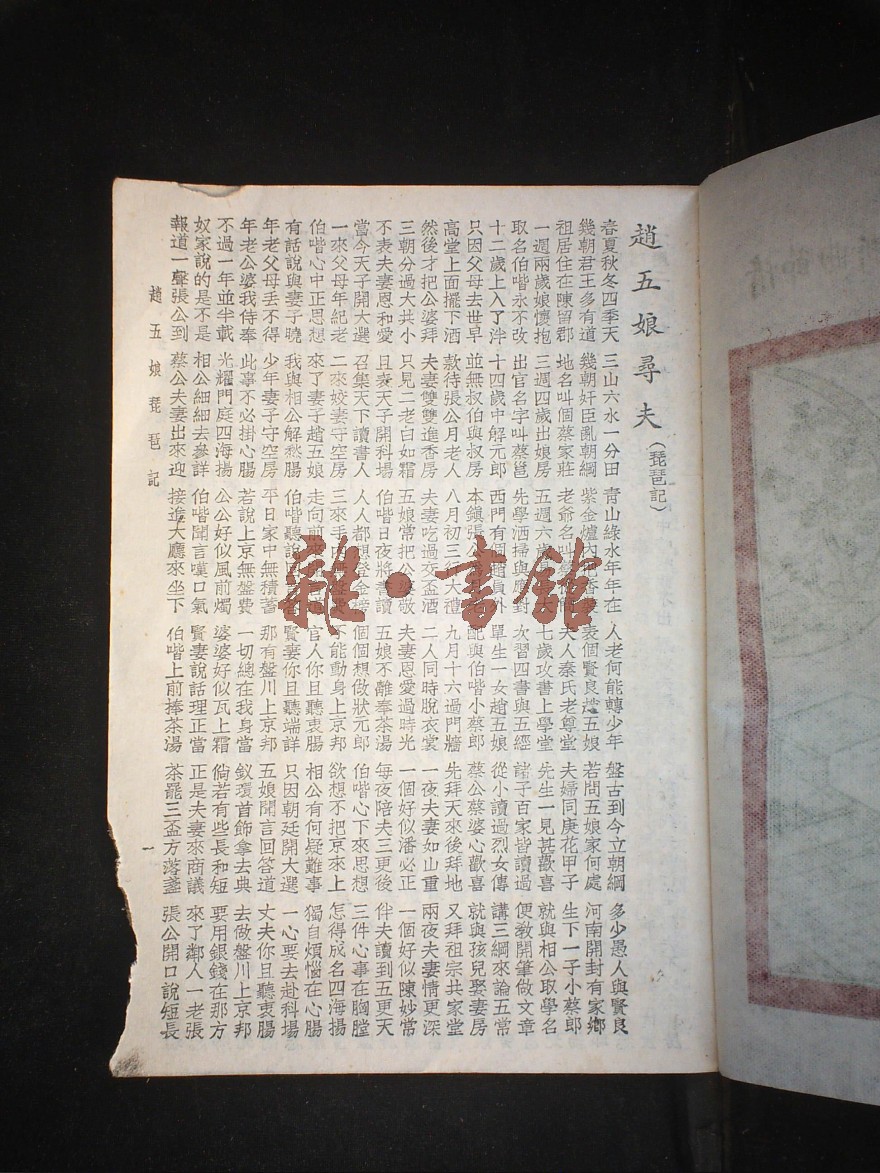 趙五娘尋夫(琵琶記)
春夏秋冬四季天 三山六水一分田 青山綠水年年在 人老何能轉少年 盤古到今立朝綱 多少愚人與賢良
幾朝君王多有道 幾朝奸臣亂朝綱 紫金爐內 表個賢良趙五娘 若問五娘家何處 河南開封有家鄉
祖居住在陳留郡 地名叫個蔡家莊 老爺名叫 夫人秦氏老尊堂 夫婦同庚花甲子 生下一子小蔡郎
一週兩歲娘懷抱 三週四歲出娘房 五週六歲 七歲攻書上學堂 先生一見甚歡喜 就與相公取學名
取名伯喈永不改 出官名字叫蔡邕 先學洒掃與應對 次習四書與五經 諸子百家皆讀過 便教開筆做文章
十二歲上入了泮 十四歲中解元郎 西門有個 單生一女趙五娘 從小讀過烈女傳 講三綱來論五常
只因父母去世早 並無叔伯與叔房 本鎮張公 配與伯喈小蔡郎 蔡公蔡婆心歡喜 就與孩兒娶妻房
高堂上面擺下酒 款待張公月老人 八月初三大禮 九月十六過門牆 先拜天來後拜地 又拜祖宗共家堂
然後才把公婆拜 夫妻雙雙進香房 夫妻吃過交盃酒 二人同時脫衣裳 一夜夫妻如山重 兩夜夫妻情更深
三朝分過大共小 只見二老白如霜 五娘常把公婆敬 夫妻恩愛過時光 一個好似潘必正 一個好似陳妙常
不表夫妻恩和愛 且表天子開科場 伯喈日夜將書讀 五娘不離奉茶湯 每夜陪夫三更後 伴夫讀到五更天
當今天子開大選 召集天下讀書人 人人都想登金榜 個個想做狀元郎 伯喈心下來思想 三件心事在胸膛
一來父母年紀老 二來姣妻守空房 三來手中 不能動身上京邦 欲想不把京來上 怎得成名四海揚
伯喈心中正思想 來了妻子趙五娘 走向前來 官人你且聽衷腸 相公有何疑難事 獨自煩惱在心腸
有話說與妻子曉 我與相公解愁腸 伯喈聽說 賢妻你且聽端詳 只因朝廷開大選 一心要去赴科場
年老父母丟不得 少年妻子守空房 平日家中無積蓄 那有盤川上京邦 五娘聞言回答道 丈夫你且聽衷腸
年老公婆我侍奉 此事不必掛心腸 若說上京無盤費 一切總在我身當 釵環首飾拿去典 去做盤川上京邦
不過一年並半載 光耀門庭四海揚 公公好似風前燭 婆婆好似瓦上霜 倘若有些長和短 要用銀錢在那方
奴家說的是不是 相公細細去參詳 伯喈聞言嘆口氣 賢妻說話理正當 正是夫妻來商議 來了鄰人一老張
報道一聲張公到 蔡公夫妻出來迎 接進大廳來坐下 伯喈上前捧茶湯 茶罷三盃方落盞 張公開口說短長
趙五娘琵琶記 一
雜·書館